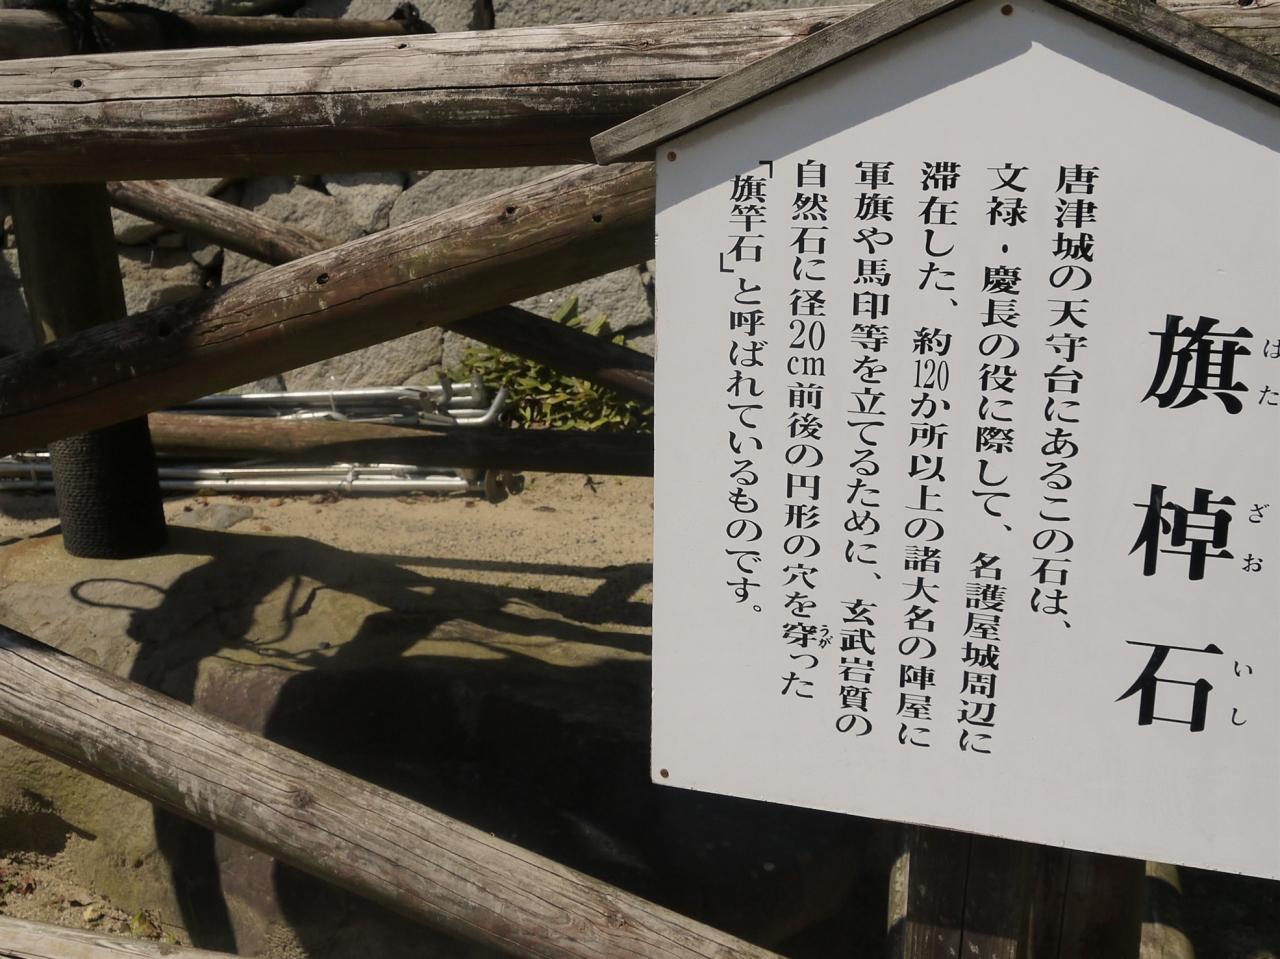 旗棹石
はた
ざお
いし
唐津城の天守台にあるこの石は、
文禄・慶長の役に際して、名護屋城周辺に
滞在した、約120か所以上の諸大名の陣屋に
軍旗や馬印等を立てるために、玄武岩質の
自然石に径20cm前後の円形の穴を穿った
うが
「旗竿石」と呼ばれているものです。